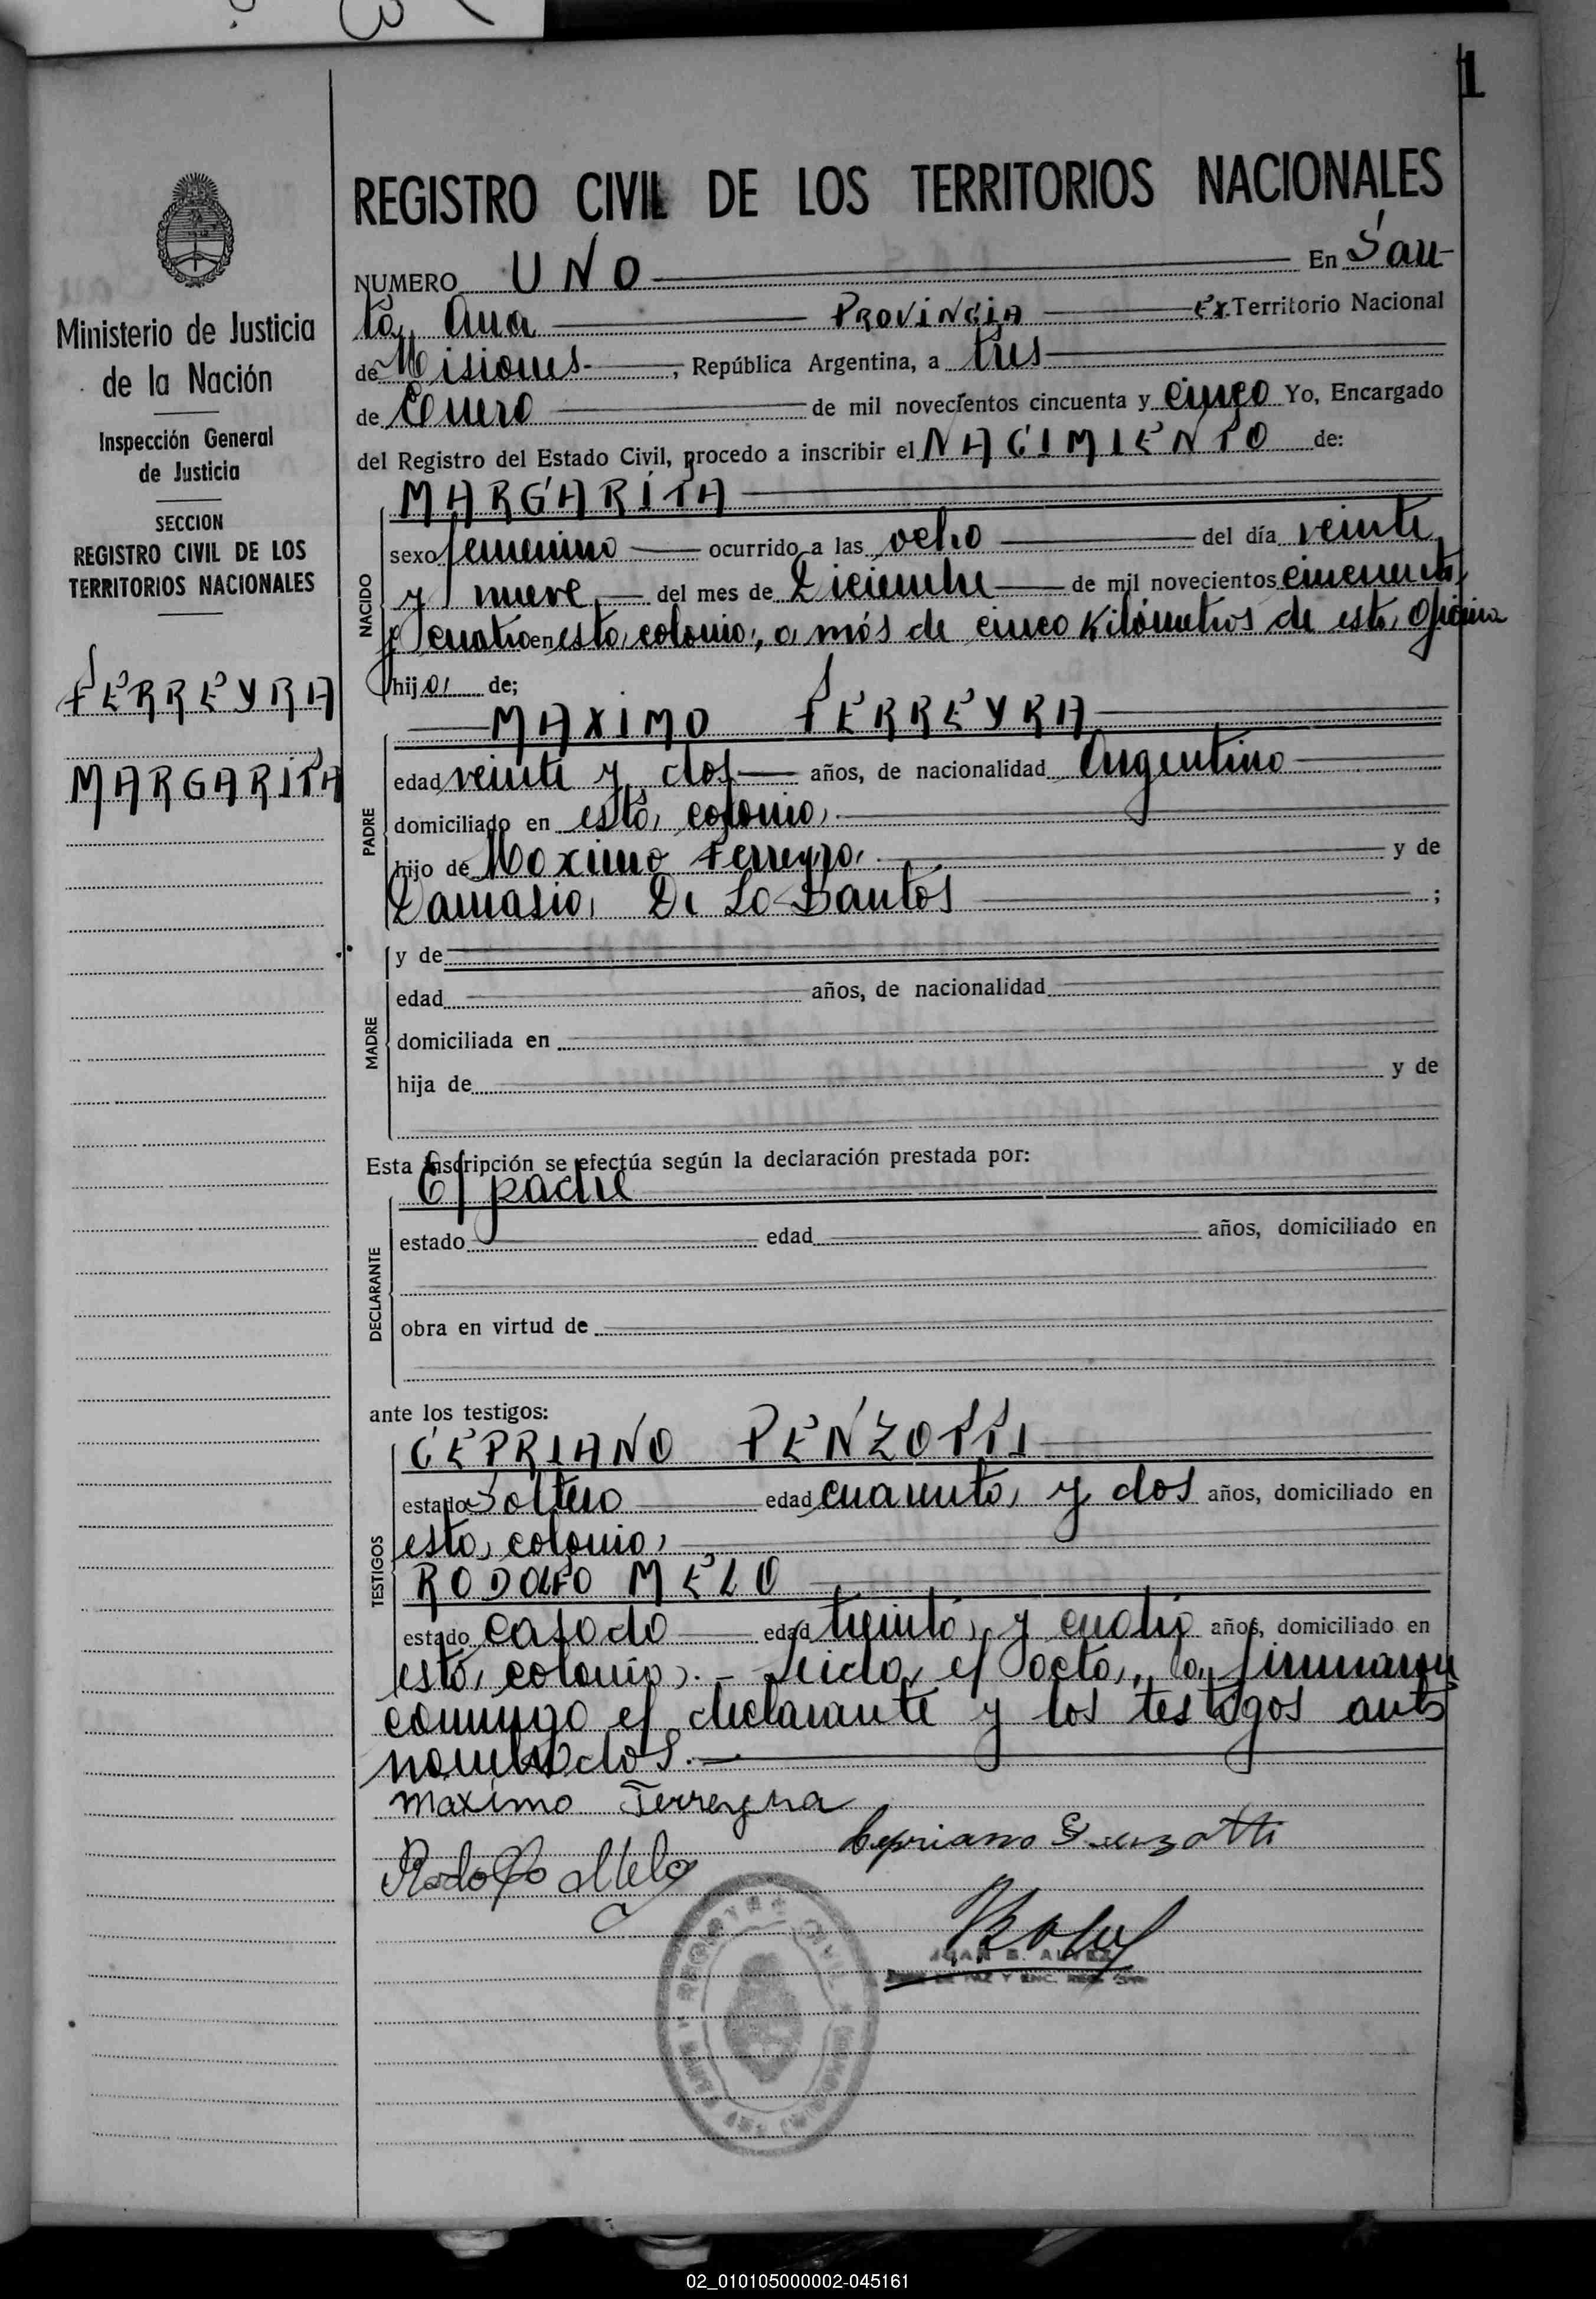 1
REGISTRO CIVIL DE LOS TERRITORIOS NACIONALES
NUMERO UNO En San
ta Ana PROVINCIA Ex Territorio Nacional
de Misiones.- , República Argentina, a tres
de Enero de mil novecientos cincuenta y cinco Yo, Encargado
del Registro del Estado Civil, procedo a inscribir el NACIMIENTO de:
MARGARITA
NACIDO
sexo femenino ocurrido a las ocho del día veinte
y nueve del mes de Diciembre de mil novecientos cincuenta
y cuatro en esta colonia, a más de cinco Kilómetros de esta Oficina
hija de;
MAXIMO FERREYRA
PADRE
edad veinte y dos años, de nacionalidad Argentino
domiciliado en esta colonia
hijo de Maximo Ferreyra y de
Damasia De Lo Santos ;
MADRE
y de
edad años, de nacionalidad
domiciliada en
hija de y de
Esta inscripción se efectúa según la declaración prestada por:
El padre
DECLARANTE
estado edad años, domiciliado en
obra en virtud de
ante los testigos:
TESTIGOS
CEPRIANO PENZOTTI
estado Soltero edad cuarenta y dos años, domiciliado en
esta colonia
RODOLFO MELO
estado casado edad treinta y cuatro años, domiciliado en
esta colonia.- Leida el acta, la firmaron
conmigo el declarante y los testigos ante
nombrados.-
Maximo Ferreyra
Cepriano Penzotti
Rodolfo Melo
JUAN B. ALVEZ
JUEZ DE PAZ Y ENC. REG.
REGISTRO CIVIL
Ministerio de Justicia
de la Nación
Inspección General
de Justicia
SECCION
REGISTRO CIVIL DE LOS
TERRITORIOS NACIONALES
FERREYRA
MARGARITA
02_010105000002-045161